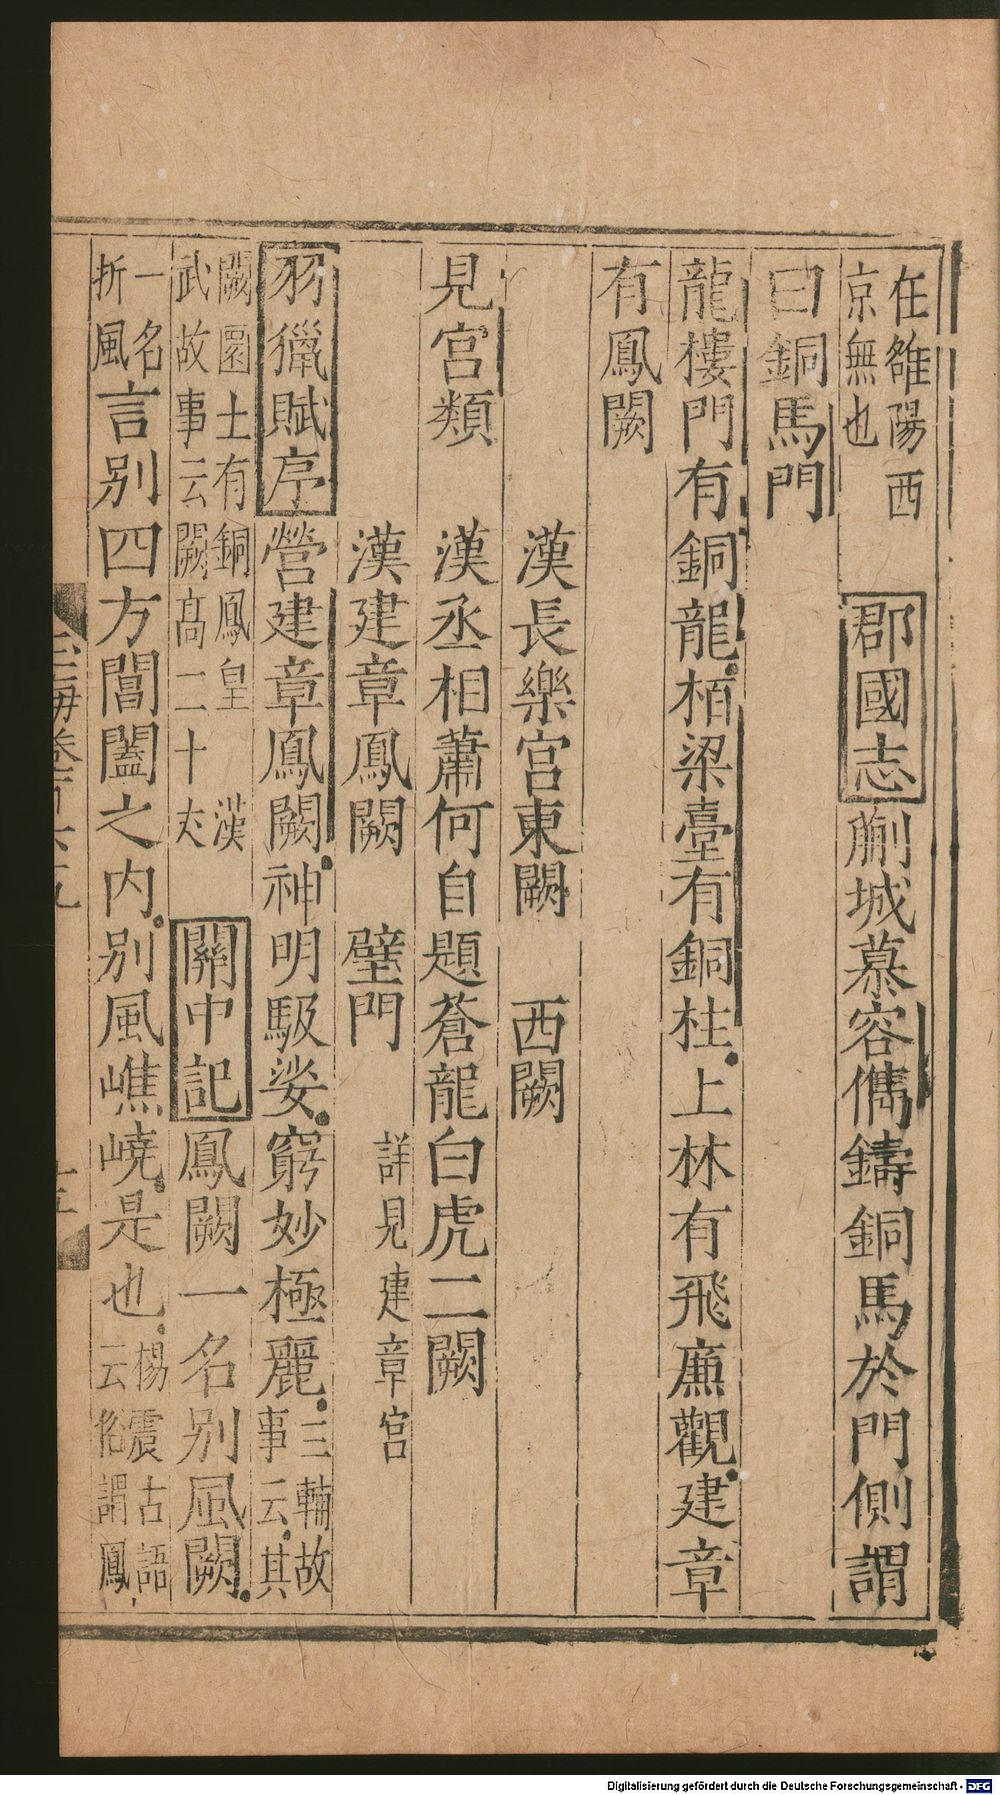 在雒陽西
京無也
郡國志蒯城慕容儁鑄銅馬於門側謂
曰銅馬門
龍樓門有銅龍栢梁臺有銅柱上林有飛廉觀建章
有鳳闕
漢長樂宮東闕 西闕
見宮類 漢丞相蕭何自題蒼龍白虎二闕
漢建章鳳闕 壁門 詳見建章宮
羽獵賦序營建章鳳闕神明馺娑窮妙極麗三輔故
事云其
闕圜土有銅鳳皇 漢
武故事云闕高二十丈
關中記鳳闕一名別風闕
一名
折風
言別四方閶闔之内別風嶕嶢是也楊震古語
云俗謂鳳
玉海卷百六九
十五
Digitalisierung gefördert durch die Deutsche Forschungsgemeinschaft - DFG